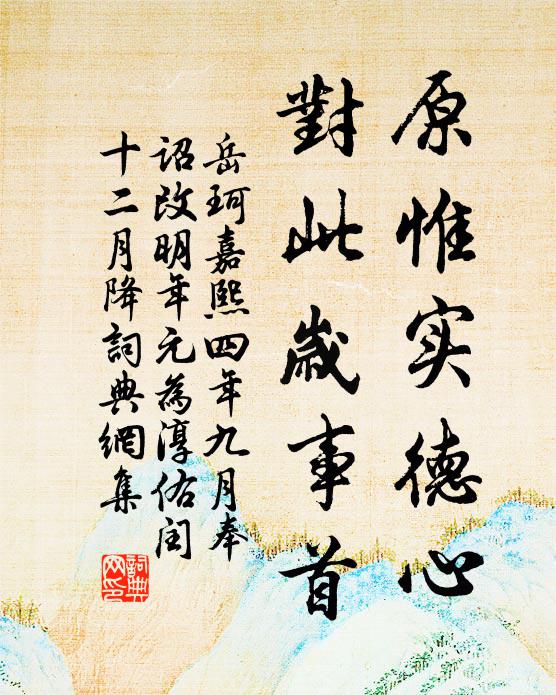 原惟实德心
對此歲事首
岳珂嘉熙四年九月奉
诏改明年元為淳佑闰
十二月降詞典網集
詞典网印